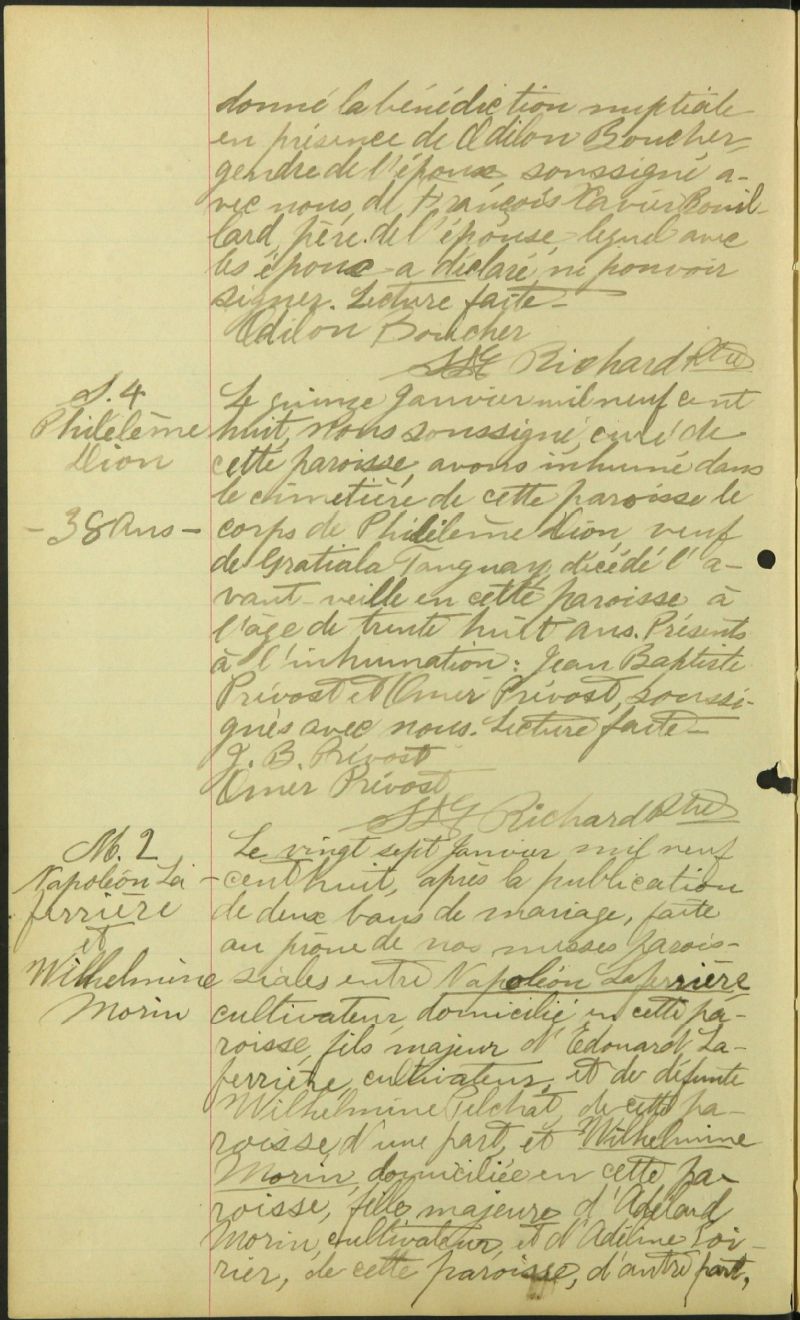 donné la bénédiction nuptiale
en présence de Odilon Boucher,
gendre de l'époux soussigné a-
vec nous, de François Xavier Rouil-
lard, père de l'épouse lequel avec
les époux a déclaré ne pouvoir
signer. Lecture faite-
Odilon Boucher
Richard Ptre
S. 4
Philélème
Dion
- 38 Ans -
Le quinze Janvier mil neuf cent
huit, Nous soussigné, curé de
cette paroisse, avons inhumé dans
le cimetière de cette paroisse le
corps de Philélème Dion, veuf
de Gratiala Tanguay, décédé l'a-
vant-veille en cette paroisse à
l'âge de trente huit ans. Présents
à l'inhumation: Jean Baptiste
Prévost et Omer Prévost, soussi-
gnés avec nous. Lecture faite-
J. B. Prévost
Omer Prévost
Richard Ptre
M. 2
Napoléon La-
ferrière
et
Wilhelmine
Morin
Le vingt sept Janvier mil neuf
cent huit, après la publication
de deux bans de mariage, faite
au prône de nos messes parois-
siales entre Napoléon Laferrière
cultivateur, domicilié en cette pa-
roisse, fils majeur d'Edouard La-
ferrière, cultivateur, et de défunte
Wilhelmine Pelchat, de cette pa-
roisse, d'une part, et Wilhelmine
Morin, domiciliée en cette pa-
roisse, fille majeure d'Adélard
Morin, cultivateur, et d'Adéline Poi-
rier, de cette paroisse, d'autre part,